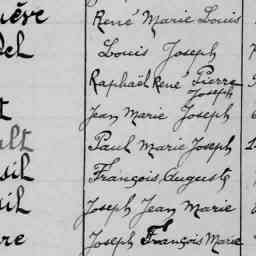 René Marie Louis
Louis Joseph
Raphaël René Pierre
Joseph
Jean Marie Joseph
Paul Marie Joseph
François, Auguste
Joseph Jean Marie
Joseph François Marie